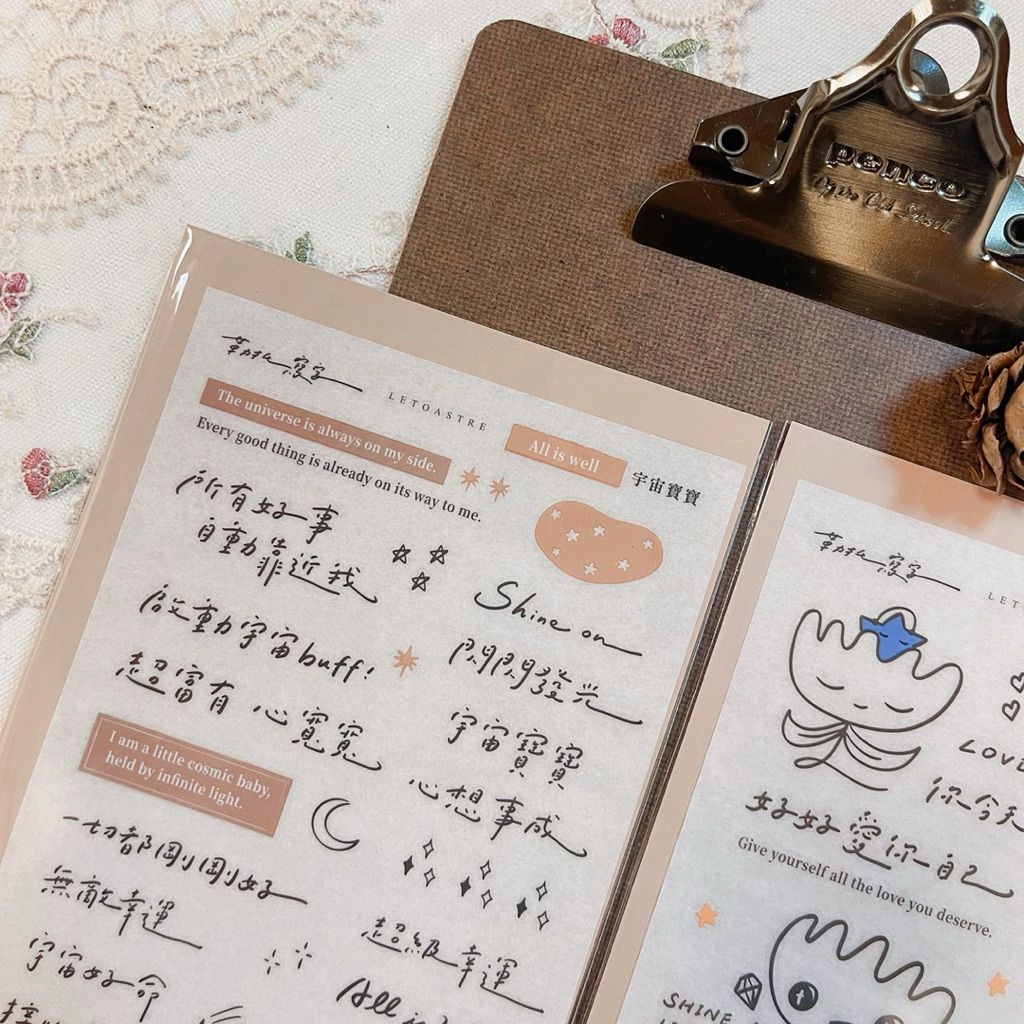 penco
LETOASTRE
The universe is always on my side.
Every good thing is already on its way to me.
All is well
宇宙寶寶
所有好事
自動靠近我
啟動宇宙buff!
超富有 心寬寬
I am a little cosmic baby,
held by infinite light.
一切都剛剛好
無敵幸運
宇宙好命
Shine on
閃閃發光
宇宙寶寶
心想事成
超級幸運
All
LET
LOVE
你今天
好好愛你自己
Give yourself all the love you deserve.
SHINE